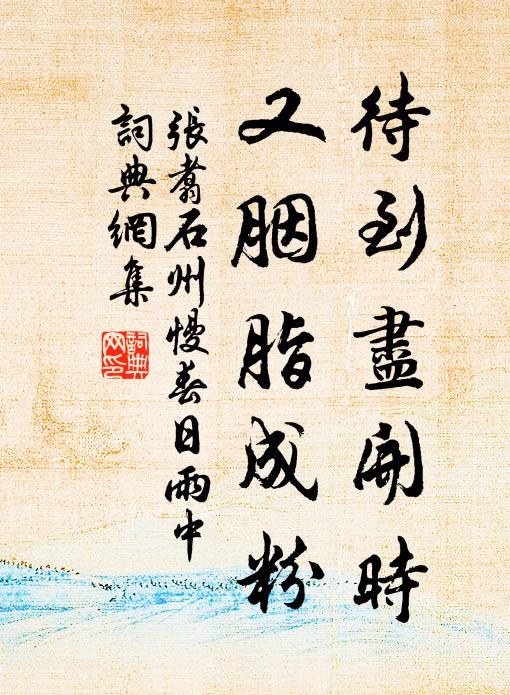 待到盡開時
又胭脂成粉
張翥石州慢春日雨中
詞典網集
詞典
网印